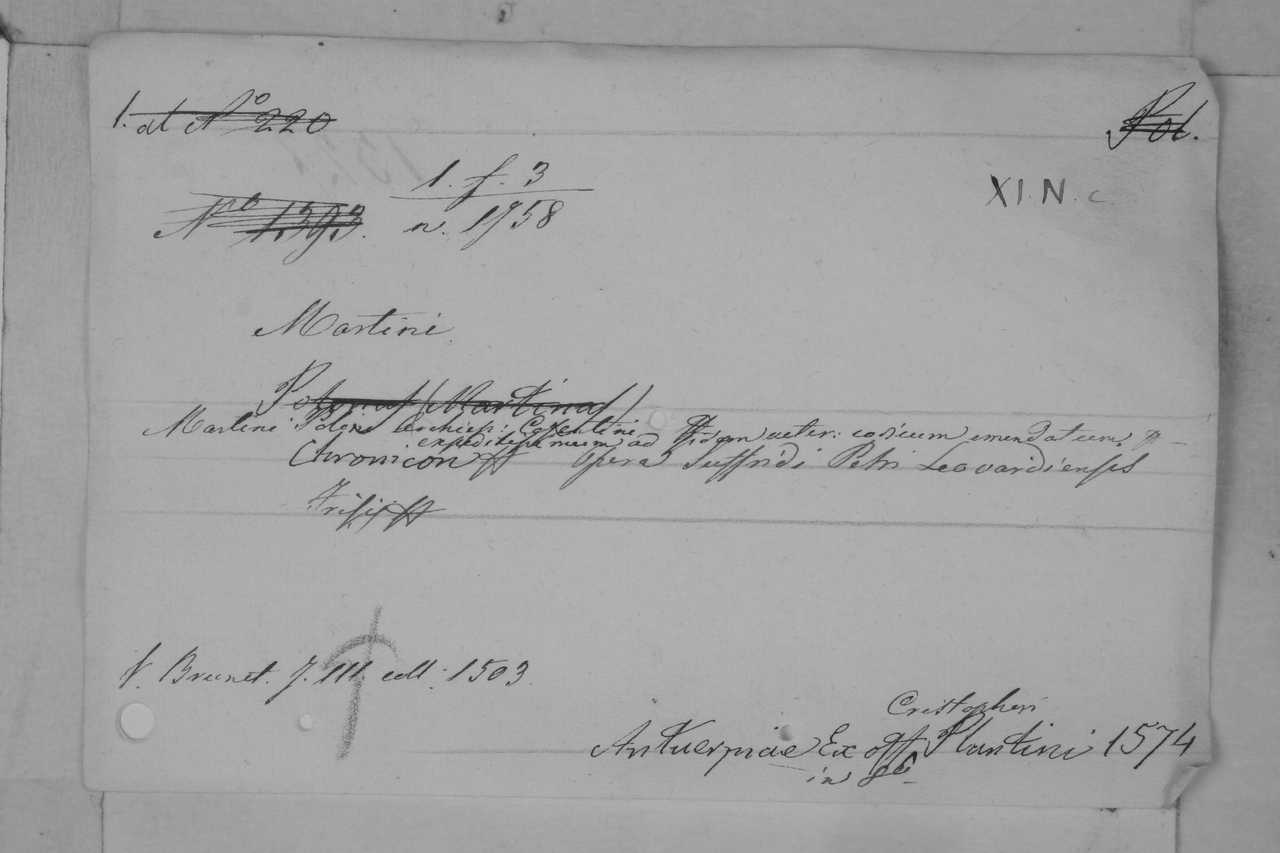 1. at No 220
Pol.
1. f. 3
XI. N. c
Nro 1393. n. 1758
Martini
Polonus (Martinus)
Martini Poloni Archiep: Cosentini
expeditissimum ad fidem veter: codicum emendatum
Chronicon opera Suffridi Petri Leovardiensis
Frisii
V. Brunet. T. III. coll: 1503
Cristopheri
Antuerpiae Ex off Plantini 1574
in 8o